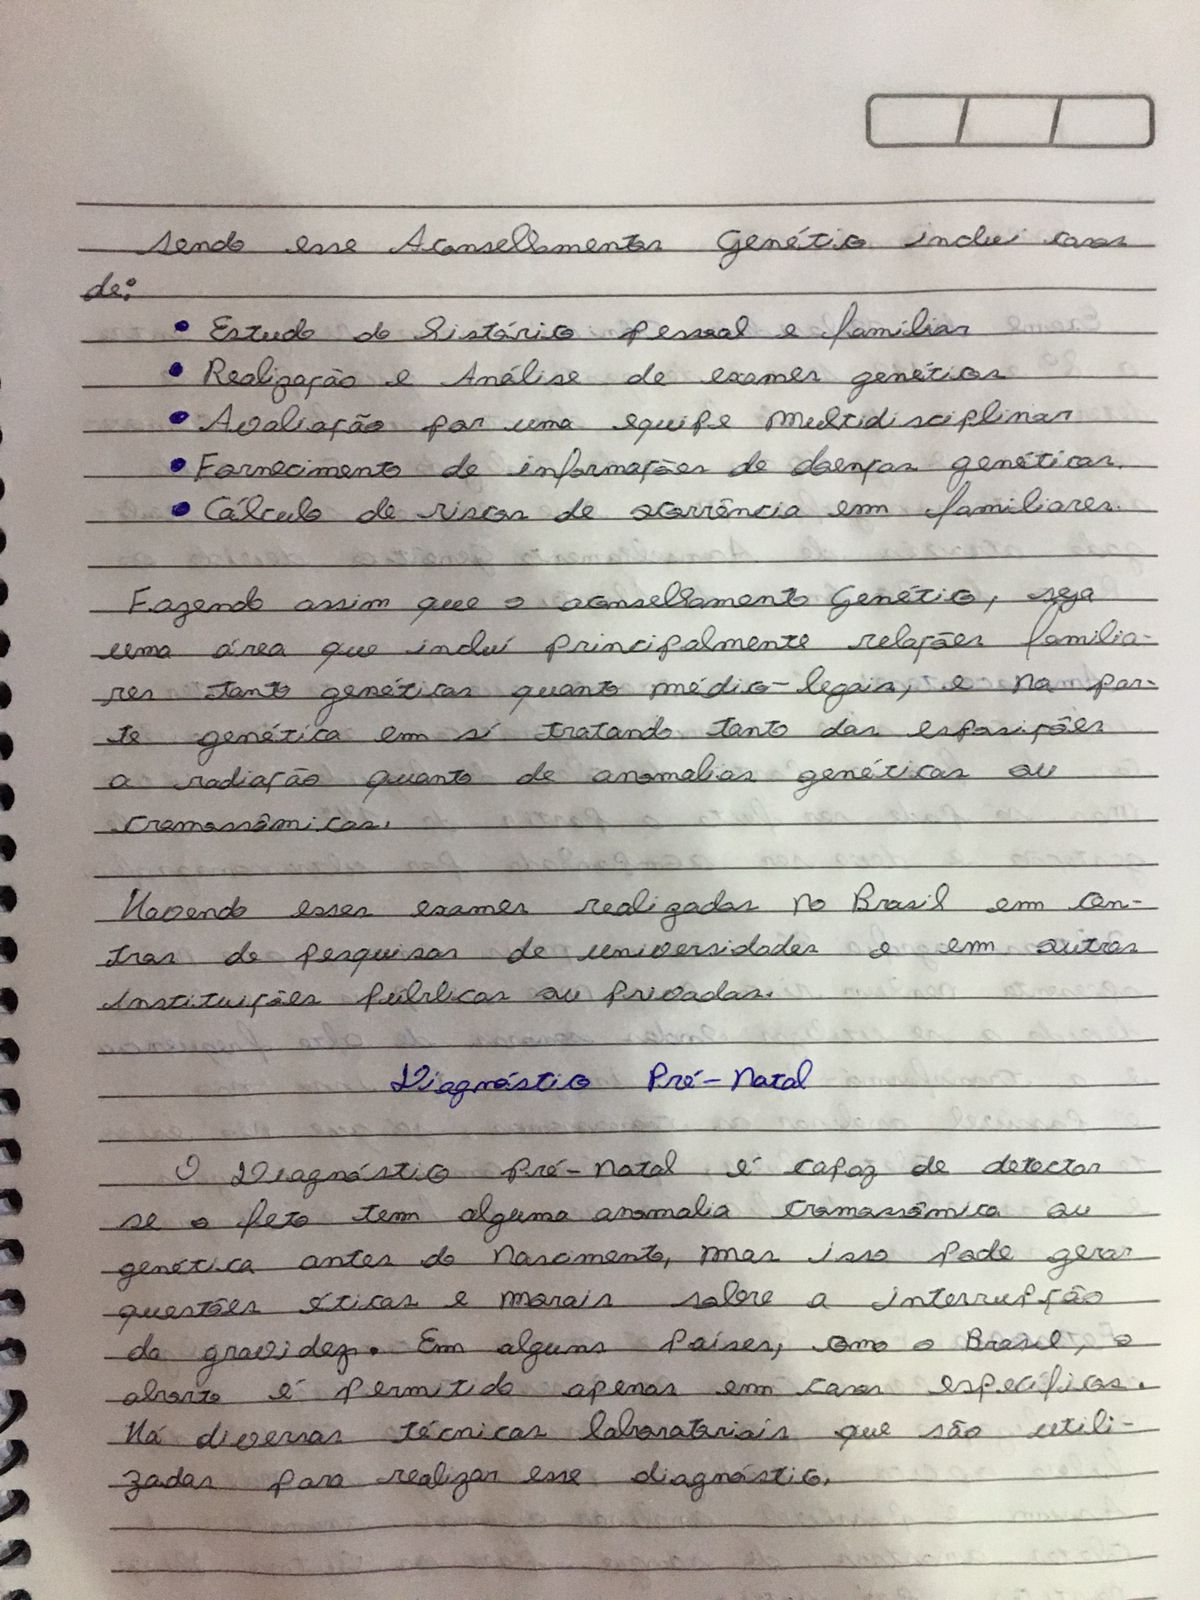 sendo esse Aconselhamentos Genético inclui casos
de:
• Estudo do histórico pessoal e familiar
• Realização e Análise de exames genéticos
• Avaliação por uma equipe multidisciplinar
• Fornecimento de informações de doenças genéticas.
• Cálculo de riscos de ocorrência em familiares.
Fazendo assim que o aconselhamento Genético, seja
uma área que incluí principalmente relações familia-
res tanto genéticas quanto médico-legais, e na par-
te genética em sí tratando tanto das esposições
a radiação quanto de anomalias genéticas ou
cromossômicas.
Havendo esses exames realizados no Brasil em cen-
tros de pesquisas de universidades e em outras
instituições públicas ou privadas.
Diagnóstico Pré-Natal
O Diagnóstico Pré-Natal é capaz de detectar
se o feto tem alguma anomalia cromossômica ou
genética antes do nascimento, mas isso pode gerar
questões éticas e morais sobre a interrupção
da gravidez. Em alguns países, como o Brasil, o
aborto é permitido apenas em casos específicos.
Há diversas técnicas laboratoriais que são utili-
zadas para realizar esse diagnóstico.